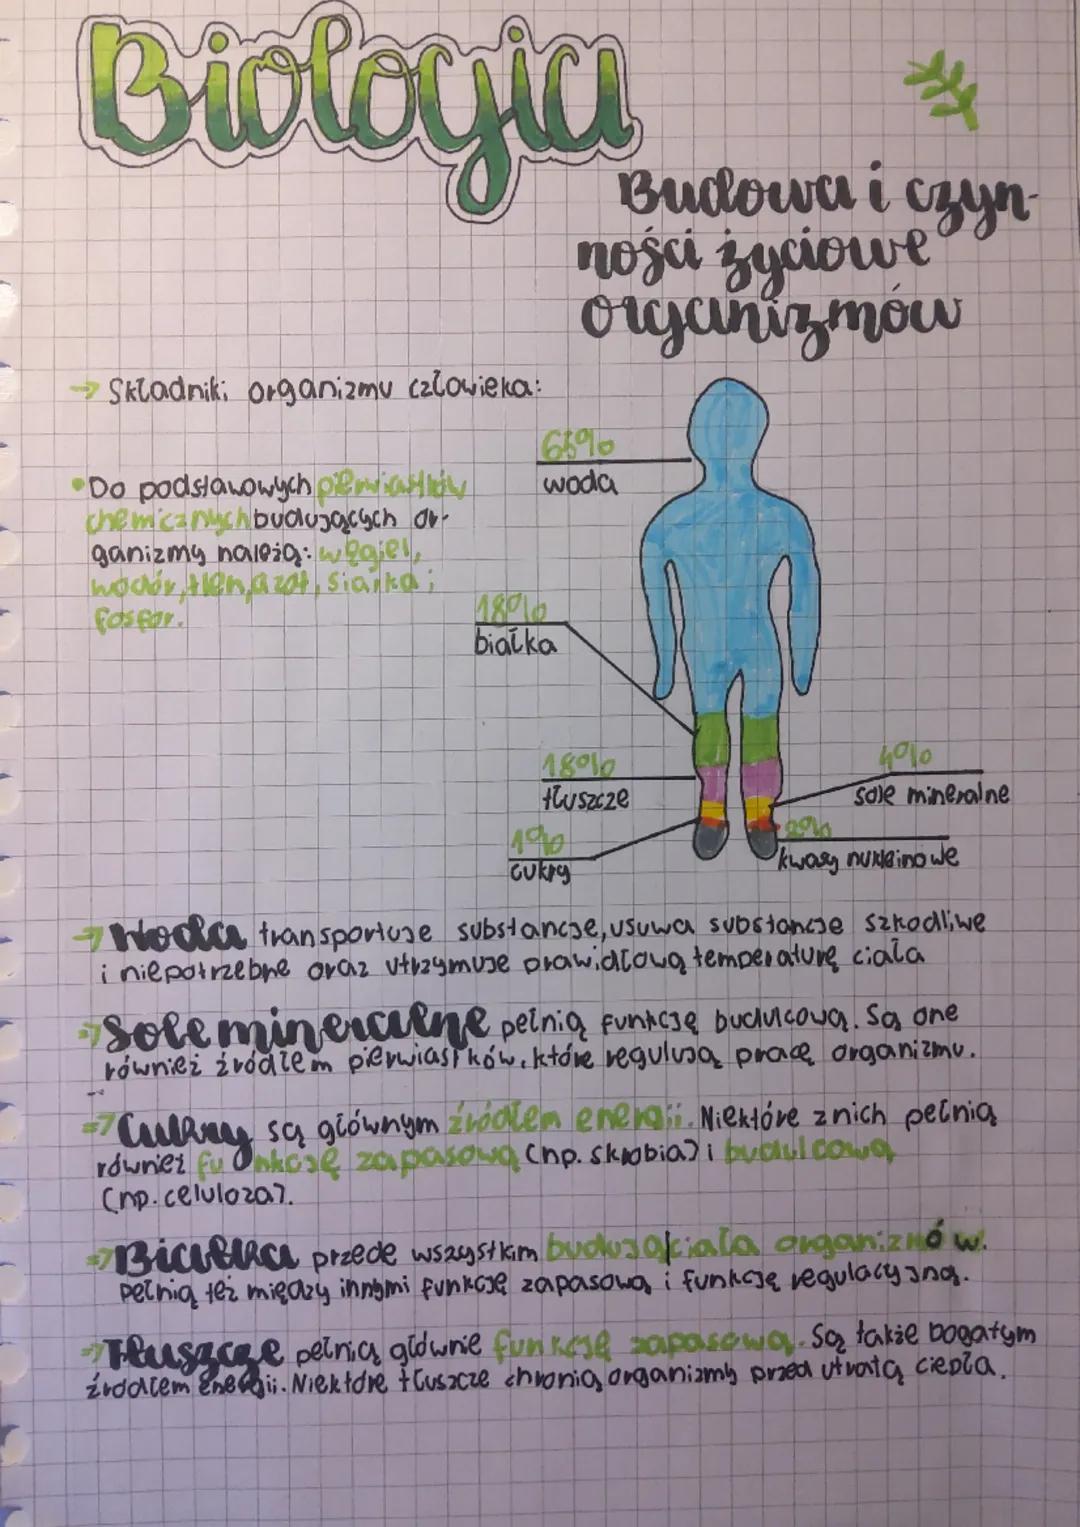 Biologia
Budowa i czyn-
ności życiowe
organizmów
→ Składniki organizmu człowieka:
65%
woda
• Do podstawowych pierwiastków
chemicznych budujących or-
ganizmy należą: węgiel,
wodór, tlen, azot, siarka i
fosfor.
18%
białka
18%
tłuszcze
4%
sole mineralne
1%
cukry
2%
kwasy nukleinowe
→ Woda transportuje substancje, usuwa substancje szkodliwe
i niepotrzebne oraz utrzymuje prawidłową temperaturę ciała
⇒ Sole mineralne pełnią funkcję budulcową. Są one
również źródłem pierwiastków, które regulują pracę organizmu.
⇒ Cukry są głównym źródłem energii. Niektóre z nich pełnią
również funkcję zapasową (np. skrobia) i budulcową
(np. celuloza).
⇒ Białka przede wszystkim budują ciała organizmów.
Pełnią też między innymi funkcję zapasową i funkcję regulacyjną.
⇒ Tłuszcze pełnią głównie funkcję zapasową. Są także bogatym
źródłem energii. Niektóre tłuszcze chronią organizmy przed utratą ciepła.